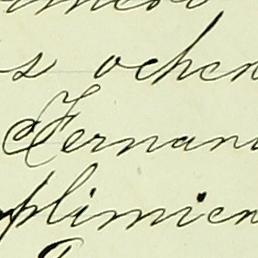 s ochen
Fernan
plimien